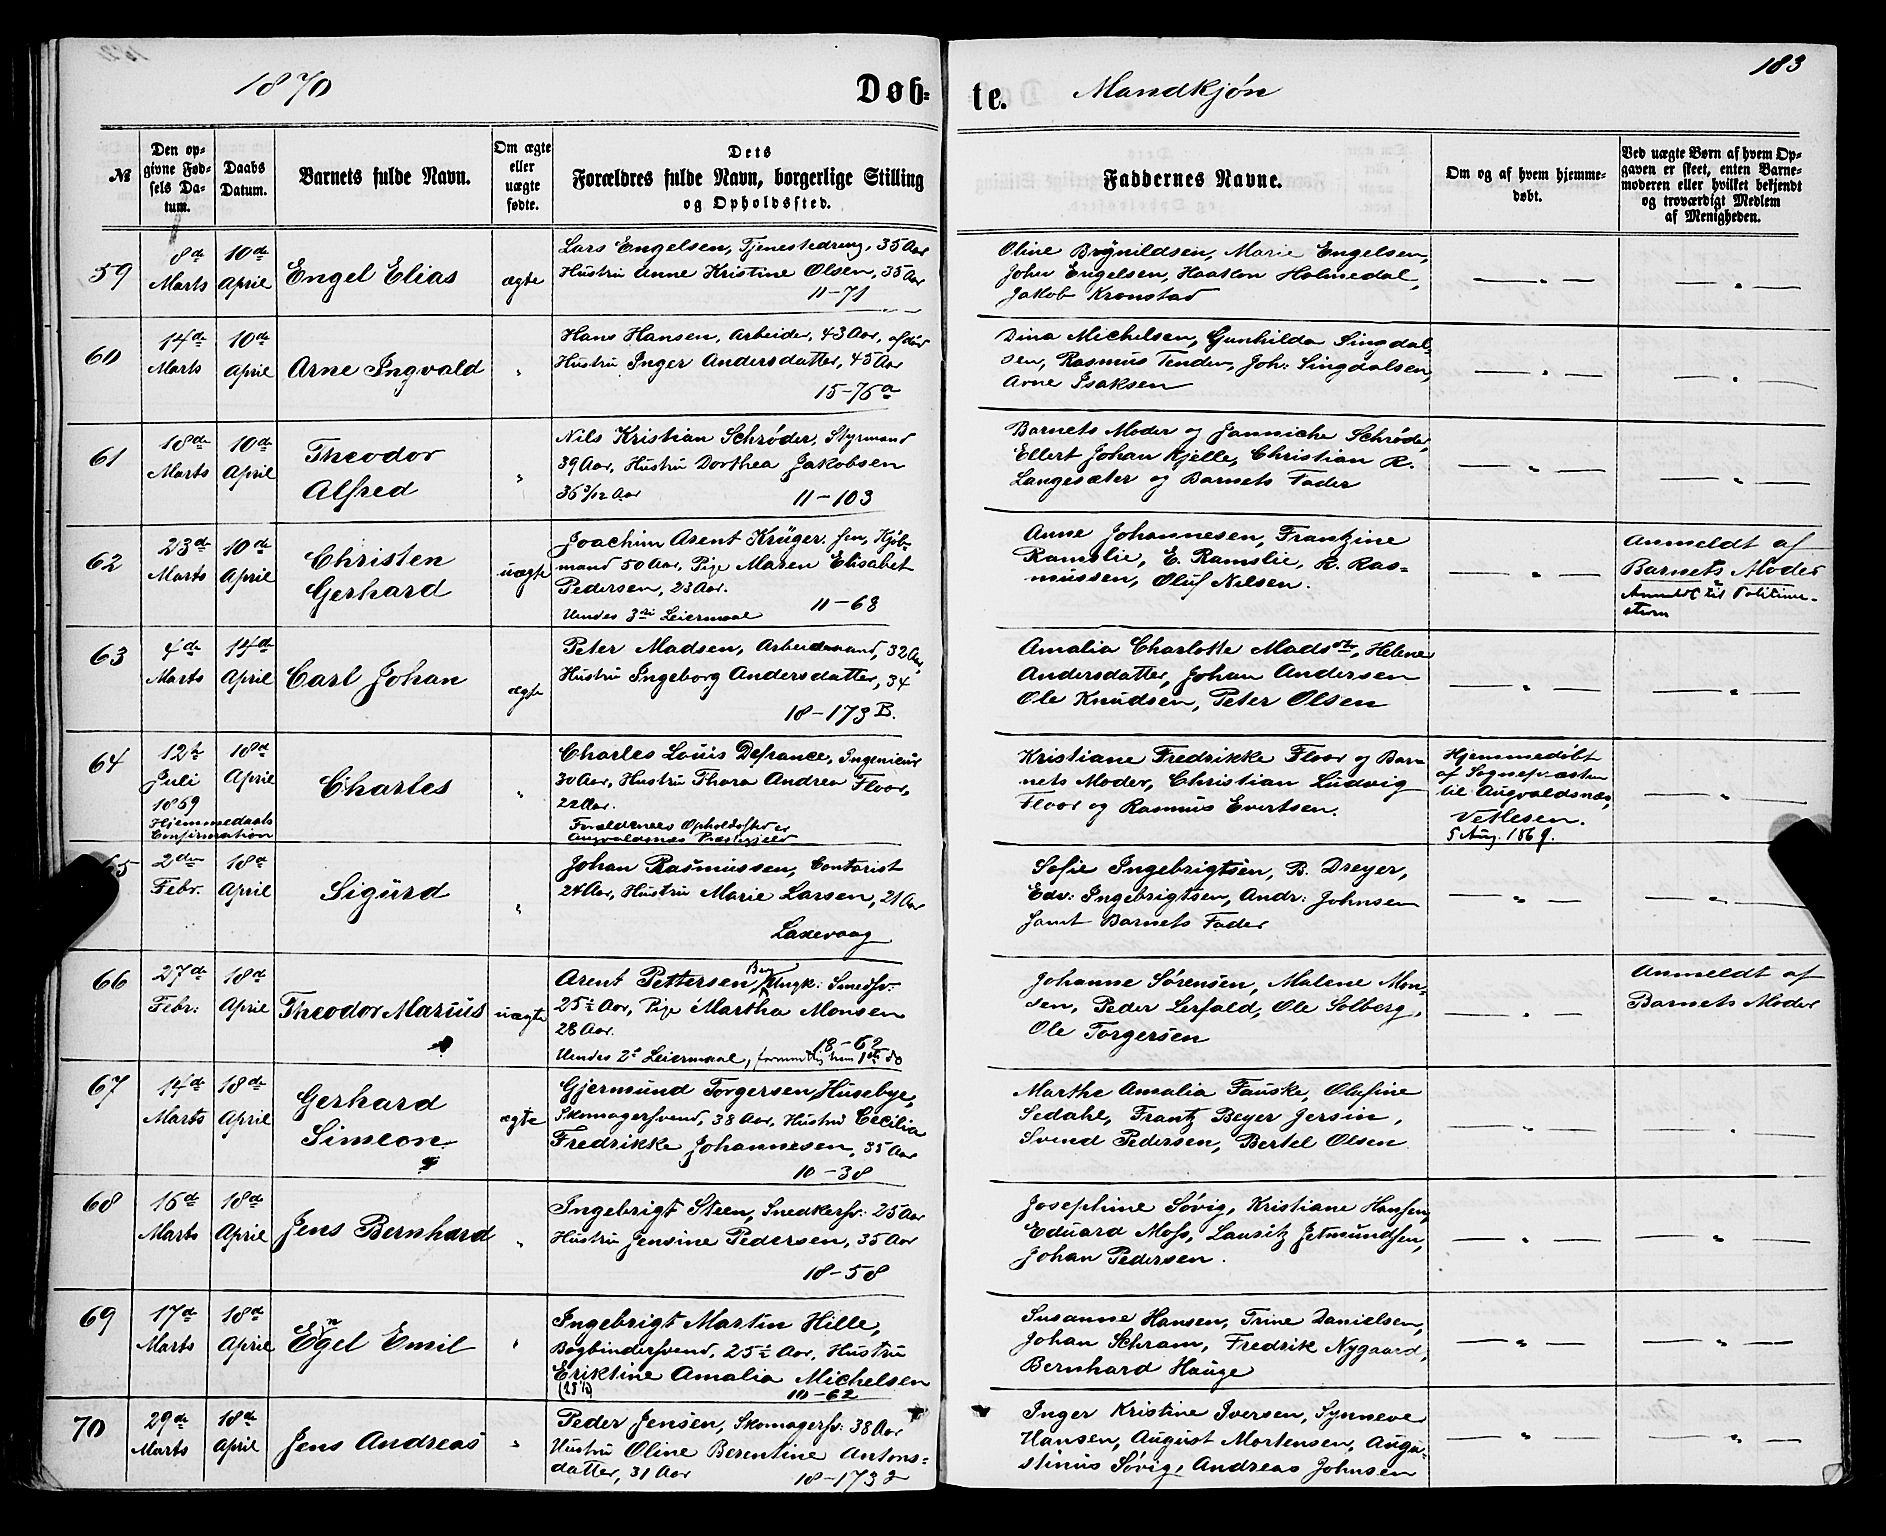 183
1870 Døb= te. Mandkjøn
№
Den opgivne Fødsels Datum.
Daabs Datum.
Barnets fulde Navn.
Om ægte eller uægte fødte.
Dets
Forældres fulde Navn, borgerlige Stilling
og Opholdssted.
Faddernes Navne.
Om og af hvem hjemmedøbt.
Ved uægte Børn af hvem Opgaven er skeet, enten Barnemoderen eller hvilket bekjendt og troværdigt Medlem af Menigheden.
59
8de Marts
10de April
Engel Elias
ægte
Lars Engelsen, Tjenestedreng, 35 Aar
Hustru Anne Kristine Olsen, 35 Aar
11-71
Oline Brynildsen, Marie Engelsen,
John Engelsen, Haakon Holmedal,
Jakob Kronstad
60
14de Marts
10de April
Arne Ingvald
"
Hans Hansen, Arbeider, 43 Aar,
Hustru Inger Andersdatter, 45 Aar
15-76a
Dina Michelsen, Gunhilda Singdal-
sen, Rasmus Tenden, Joh: Singdalsen,
Arne Isaksen
61
18de Marts
10de April
Theodor
Alfred
"
Nils Kristian Schrøder, Styrmand
39 Aar, Hustru Dorthea Jakobsen
36 3/12 Aar
11-103
Barnets Moder og Jannicke Schrøder,
Ellert Johan Kjelle, Christian R.
Langesæter og Barnets Fader
62
23de Marts
10de April
Christen
Gerhard
uægte
Joachim Arent Krüger. sen, Kjøb-
mand 50 Aar, Pige Maren Elisabet
Pedersen, 23 Aar.
11-68
Hendes 3die Leiermaal
Anne Johannesen, Frantzine
Ramslie, E. Ramslie, R. Ras-
mussen, Oluf Nilsen.
Anmeldt af
Barnets Moder
Anmeldt til Politime-
steren
63
4de Marts
14de April
Carl Johan
ægte
Peter Madsen, Arbeidsmand, 32 Aar,
Hustru Ingeborg Andersdatter, 34
18-173 B.
Amalia Charlotte Madsdtr, Helene
Andersdatter, Johan Andersen
Ole Knudsen, Peter Olsen
64
12te Juli 1869
Hjemmedaabs
Confirmation
18de April
Charles
"
Charles Louis Defrance, Ingenieur
30 Aar, Hustru Thora Andrea Floor,
22 Aar.
Forældrenes Opholdssted er
Augvaldsnæs Præstegjeld
Kristiane Fredrikke Floor og Bar-
nets Moder, Christian Ludvig
Floor og Rasmus Evertsen.
Hjemmedøbt
af Sognepræsten
til Augvaldsnæs,
Vetlesen.
5 Aug. 1869.
65
2den Febr.
18de April
Sigurd
"
Johan Rasmussen, Contorist
24 Aar, Hustru Marie Larsen, 21 Aar
Laxevaag
Sofie Ingebrigtsen, B. Dreyer,
Edv: Ingebrigtsen, Andr: Johnsen
samt Barnets Fader
66
27de Febr:
18de April
Theodor Marius
uægte
Arent Pettersen Ungk: Smedsv.
25½ Aar, Pige Martha Monsen
28 Aar.
18-62
Hendes 2det Leiermaal,
Johanne Sørensen, Malene Mon-
sen, Peder Lerfald, Ole Solberg,
Ole Torgersen
Anmeldt af
Barnets Moder
67
14de Marts
18de April
Gerhard
Simeon
ægte
Gjermund Torgersen Husebye,
Skomagersvend, 38 Aar, Hustru Cecilia
Fredrikke Johannesen, 35 Aar
10-38
Marthe Amalia Fauske, Olafine
Sedahl, Frantz Beyer Jersin,
Svend Pedersen, Bertel Olsen
68
16de Marts
18de April
Jens Bernhard
"
Ingebrigt Steen, Snedkersv: 25 Aar
Hustru Jensine Pedersen, 35 Aar
18-58
Josephine Søvig, Kristiane Hansen,
Eduard Moss, Lausitz Jetmundsen,
Johan Pedersen.
69
17de Marts
18de April
Engel Emil
"
Ingebrigt Martin Hille,
Bogbindersvend, 25½ Aar, Hustru
Eriktine Amalia Michelsen
10-62
Susanne Hansen, Trine Danielsen,
Johan Schram, Fredrik Nygaard,
Bernhard Hauge
70
29de Marts
18de April
Jens Andreas
"
Peder Jensen, Skomagersv: 38 Aar
Hustru Oline Berentine Antons=
datter, 31 Aar
18-173 2
Inger Kristine Iversen, Synneve
Hansen, August Mortensen, Augu-
stinus Søvig, Andreas Johnsen